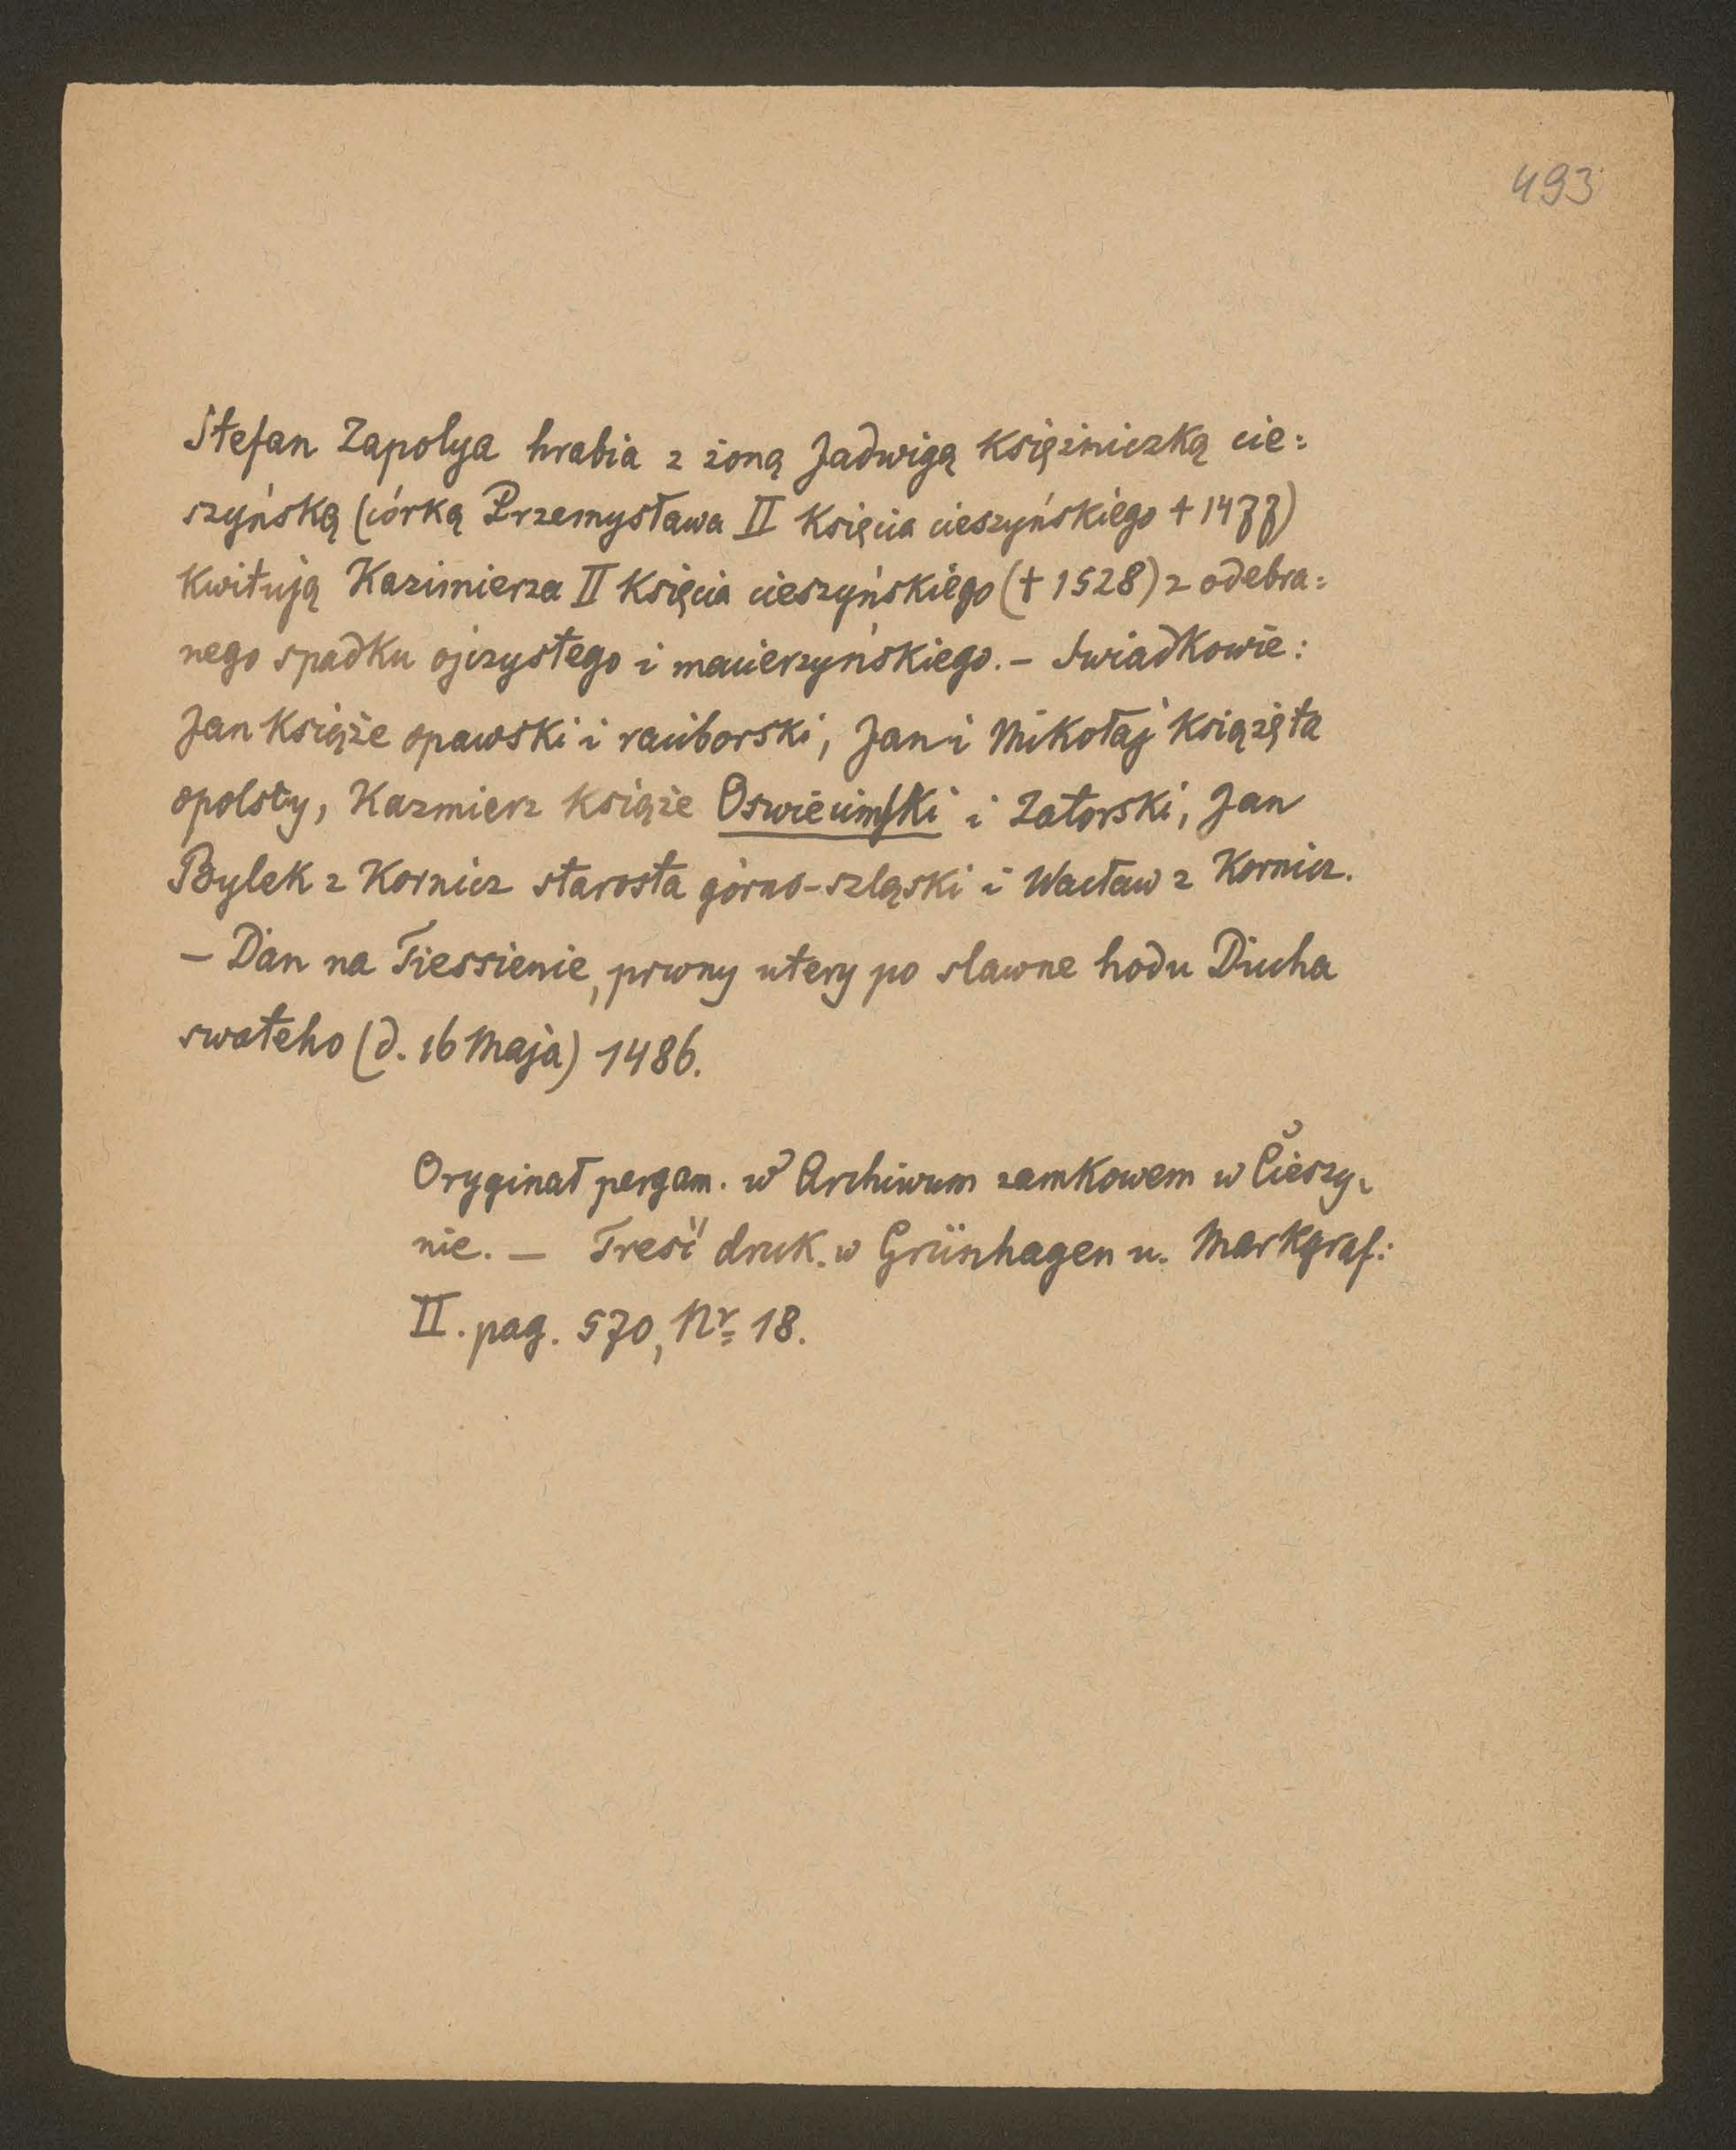 493
Stefan Zapolya hrabia z żoną Jadwigą Księżniczką cie=
szyńską (córką Przemysława II Księcia cieszyńskiego + 1477)
Kwitują Kazimierza II Księcia cieszyńskiego († 1528) z odebra=
nego spadku ojczystego i macierzyńskiego. – Świadkowie:
Jan Książe opawski i raciborski, Jan i Mikołaj Książęta
opolscy, Kazmierz Książe Oswiecimski i Zatorski, Jan
Bylek z Kornicz starosta górno-szląski i Wacław z Kornicz.
– Dan na Tiessienie, prwny utery po slawne hodu Ducha
swateho (d. 16 Maja) 1486.
Oryginał pergam. w Archiwum zamkowem w Cieszy-
nie. – Treść druk. w Grünhagen u. Markgraf:
II. pag. 570, Nr 18.